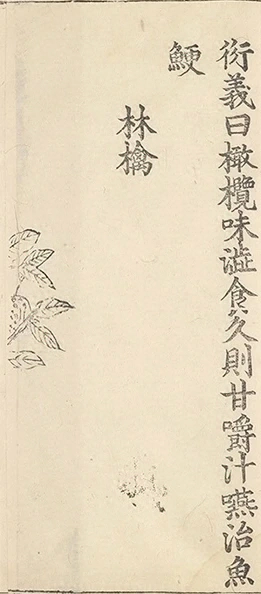 衍義曰橄欖味澁食久則甘嚼汁嚥治魚
鯁
林檎